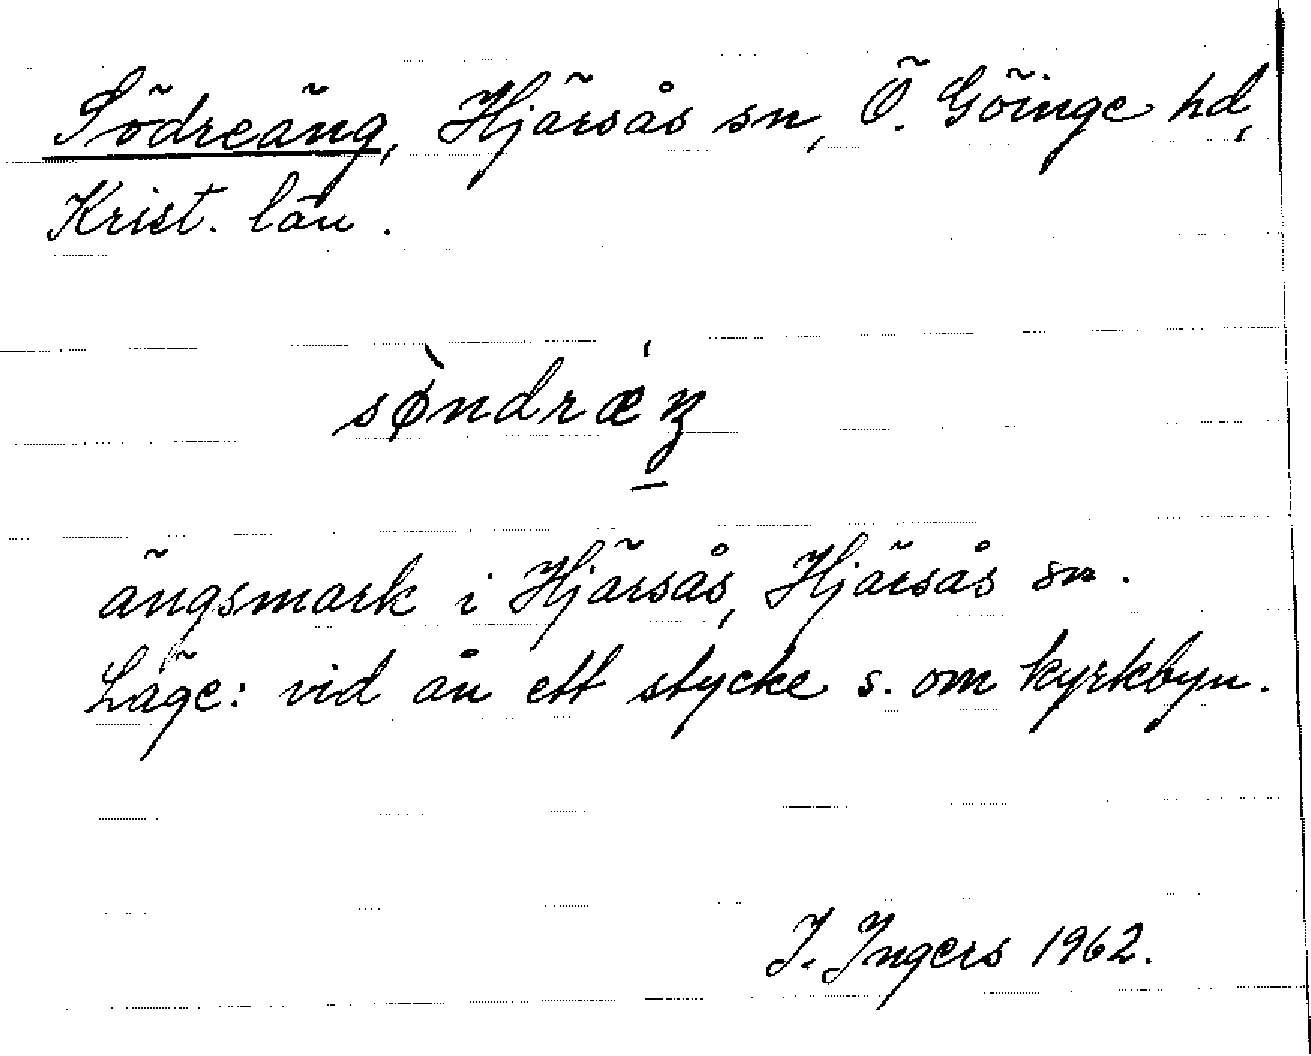 Södreäng, Hjärsås sn, Ö. Göinge hd,
Krist. län.
sø̀ndrǽŋ
ängsmark i Hjärsås, Hjärsås sn.
Läge: vid ån ett stycke s. om kyrkbyn.
I. Ingers 1962.